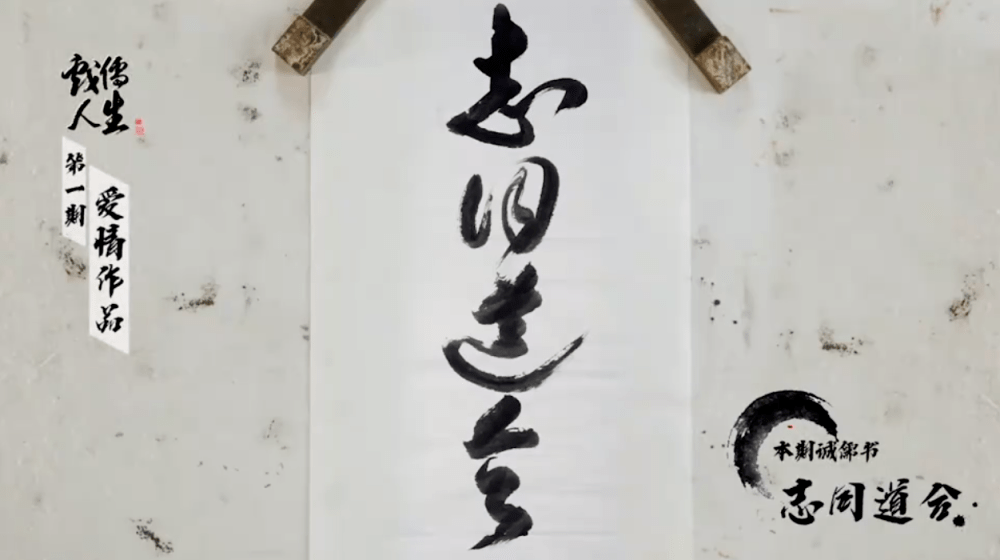 人生
第一期
爱情作品
志同道合
本期诚书
志同道合